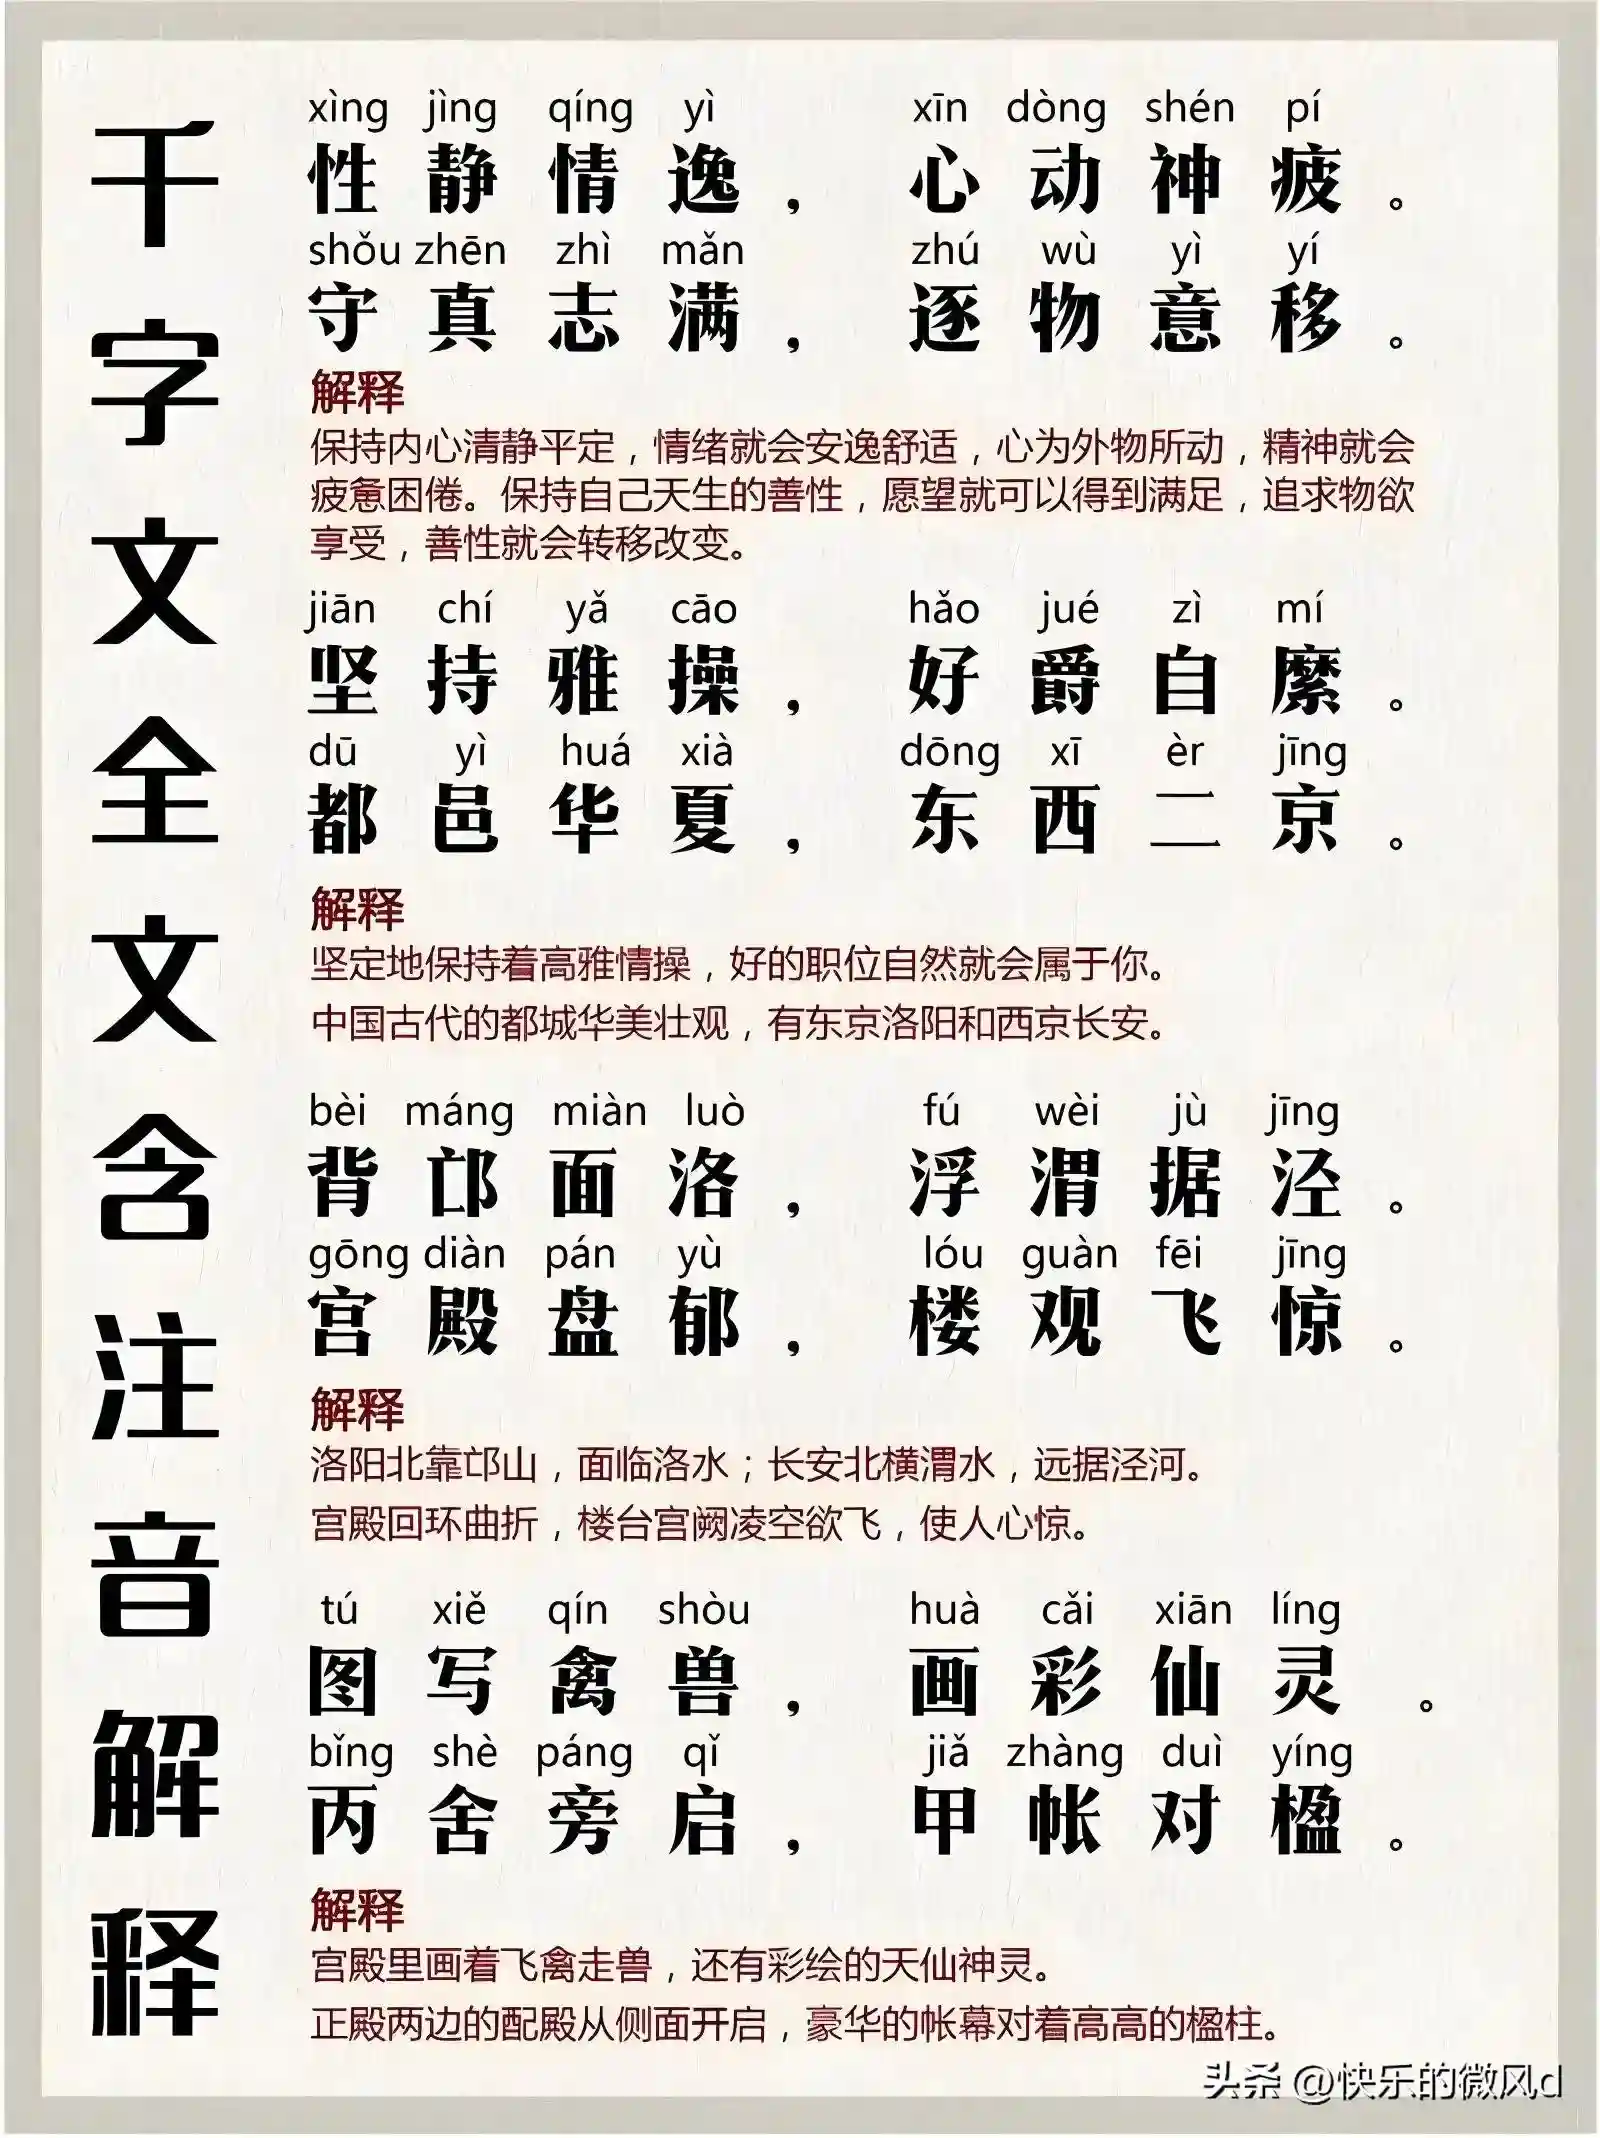 千字文全文含注音解释
xìng jìng qíng yì xīn dòng shén pí
性静情逸，心动神疲。
shǒu zhēn zhì mǎn zhú wù yì yí
守真志满，逐物意移。
解释
保持内心清静平定，情绪就会安逸舒适，心为外物所动，精神就会
疲惫困倦。保持自己天生的善性，愿望就可以得到满足，追求物欲
享受，善性就会转移改变。
jiān chí yǎ cāo hǎo jué zì mí
坚持雅操，好爵自縻。
dū yì huá xià dōng xī èr jīng
都邑华夏，东西二京。
解释
坚定地保持着高雅情操，好的职位自然就会属于你。
中国古代的都城华美壮观，有东京洛阳和西京长安。
bèi máng miàn luò fú wèi jù jīng
背邙面洛，浮渭据泾。
gōng diàn pán yù lóu guàn fēi jīng
宫殿盘郁，楼观飞惊。
解释
洛阳北靠邙山，面临洛水；长安北横渭水，远据泾河。
宫殿回环曲折，楼台宫阙凌空欲飞，使人心惊。
tú xiě qín shòu huà cǎi xiān líng
图写禽兽，画彩仙灵。
bǐng shè páng qǐ jiǎ zhàng duì yíng
丙舍旁启，甲帐对楹。
解释
宫殿里画着飞禽走兽，还有彩绘的天仙神灵。
正殿两边的配殿从侧面开启，豪华的帐幕对着高高的楹柱。
头条 @快乐的微风d